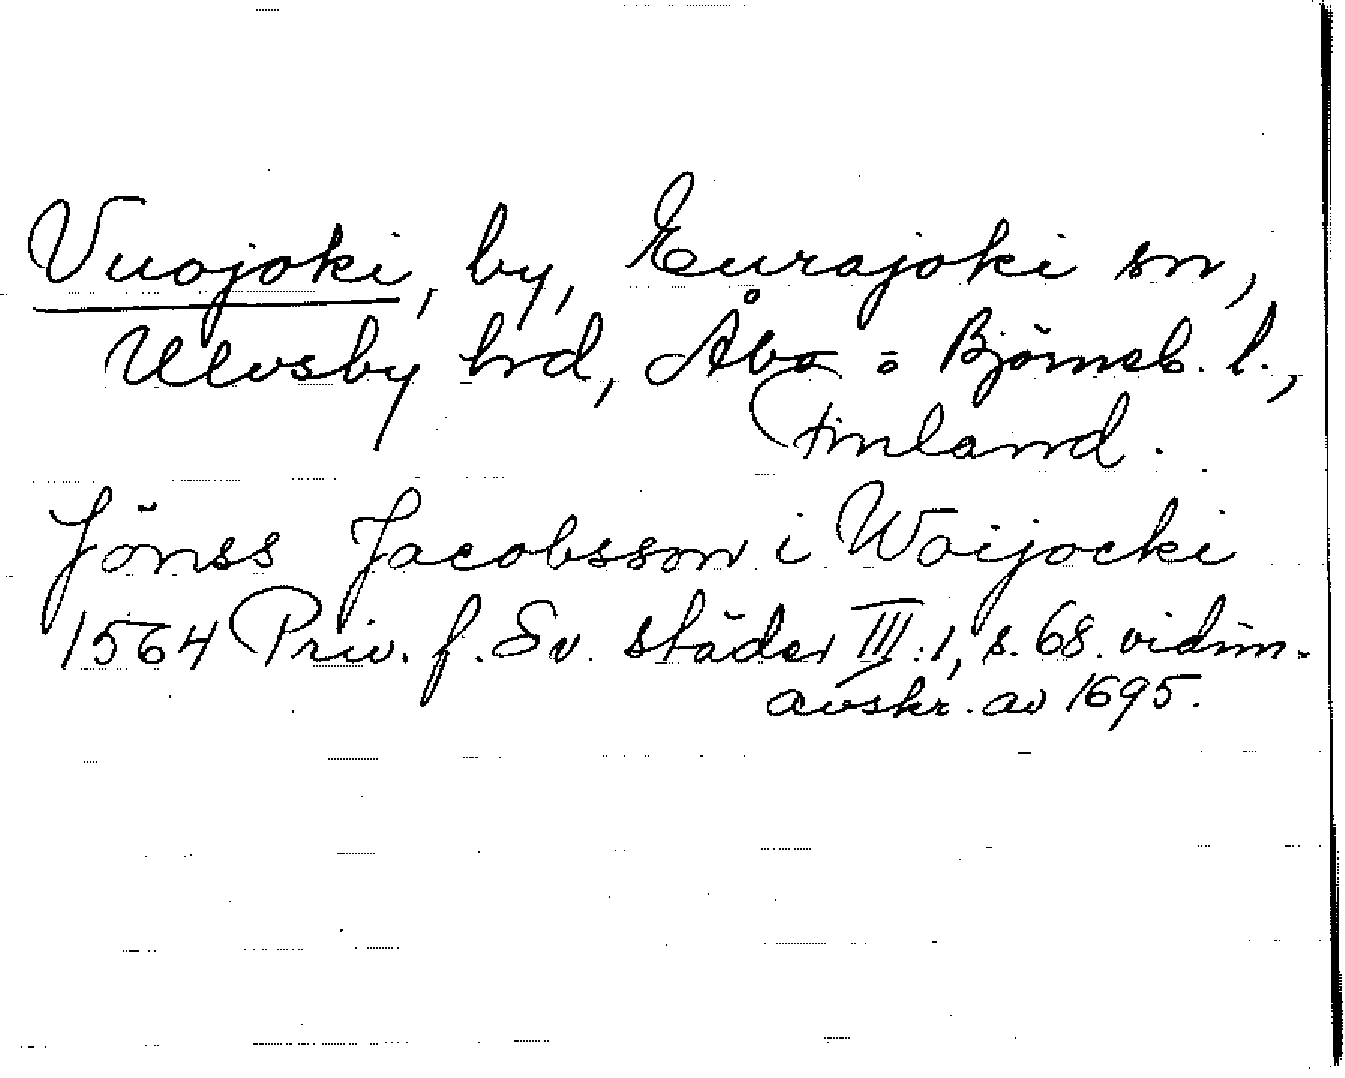 Vuojoki, by, Eurajoki sn,
Ulvsby hrd, Åbo o Björneb. l.,
Finland.
Jönss Jacobsson i Woijocki
1564 Priv. f. Sv. städer III:1, s. 68. vidim.
avskr. av 1695.